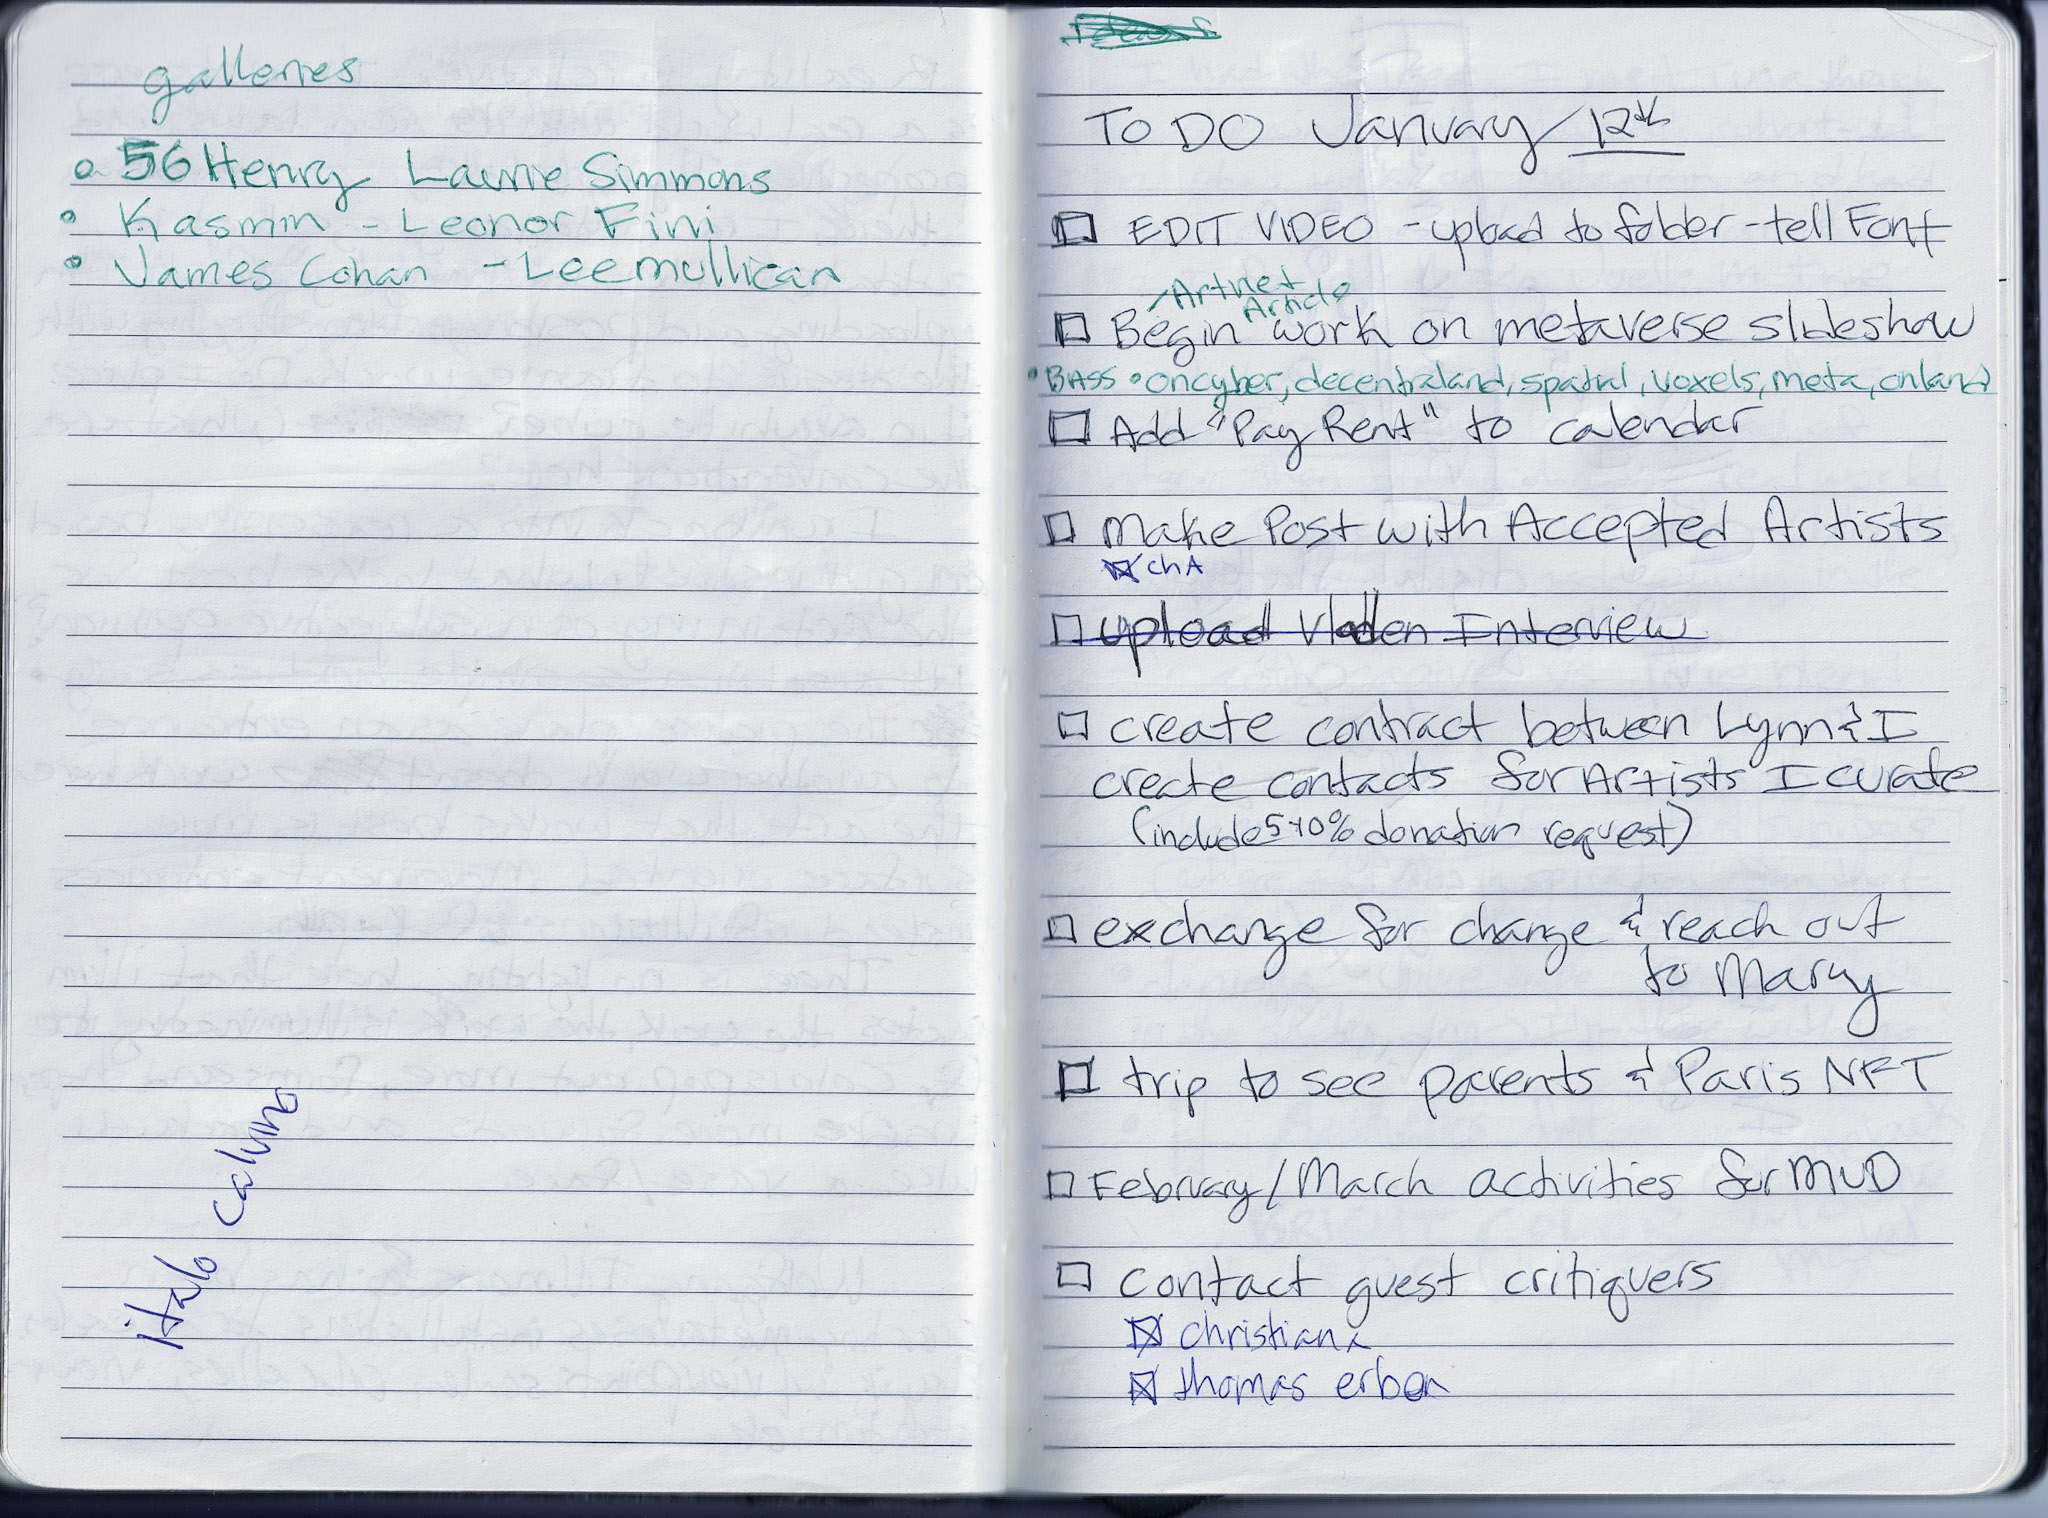 galleries
56 Henry Laurie Simmons
Kasmin - Leonor Fini
James Cohan - Lee mullican
italo calvino
TO DO January 12th
EDIT VIDEO - upload to folder - tell Font
- Artnet Article
Begin work on metaverse slideshow
• BASS • oncyber, decentraland, spatial, voxels, meta, onland
Add "Pay Rent" to calendar
Make Post with Accepted Artists
chA
upload Vladen Interview
create contract between Lynn & I
create contacts for Artists I curate
(include 5-10% donation request)
exchange for change & reach out
to Mary
trip to see parents & Paris NFT
February/March activities for MUD
contact guest critiquers
christian
thomas erben